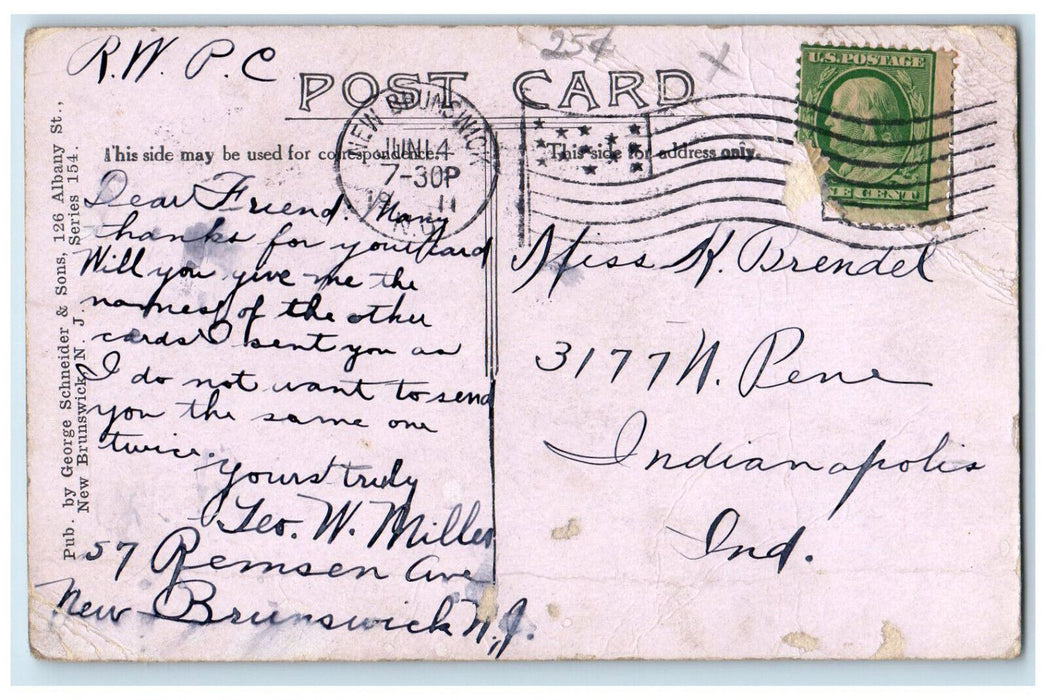 R.W.P.C
25¢
X
POST CARD
U.S. POSTAGE
NEW BRUNSWICK
JUN 14
7-30P
1911
N.J.
This side may be used for correspondence.
This side for address only.
ONE CENT
Dear Friend. Many
thanks for your card
Will you give me the
names of the other
cards I sent you as
I do not want to send
you the same one
twice.
Yours truly
Geo. W. Miller
57 Remsen Ave
New Brunswick N.J.
Miss K. Brendel
3177 N. Penn
Indianapolis
Ind.
Pub. by George Schneider & Sons, 126 Albany St.,
New Brunswick, N. J. Series 154.